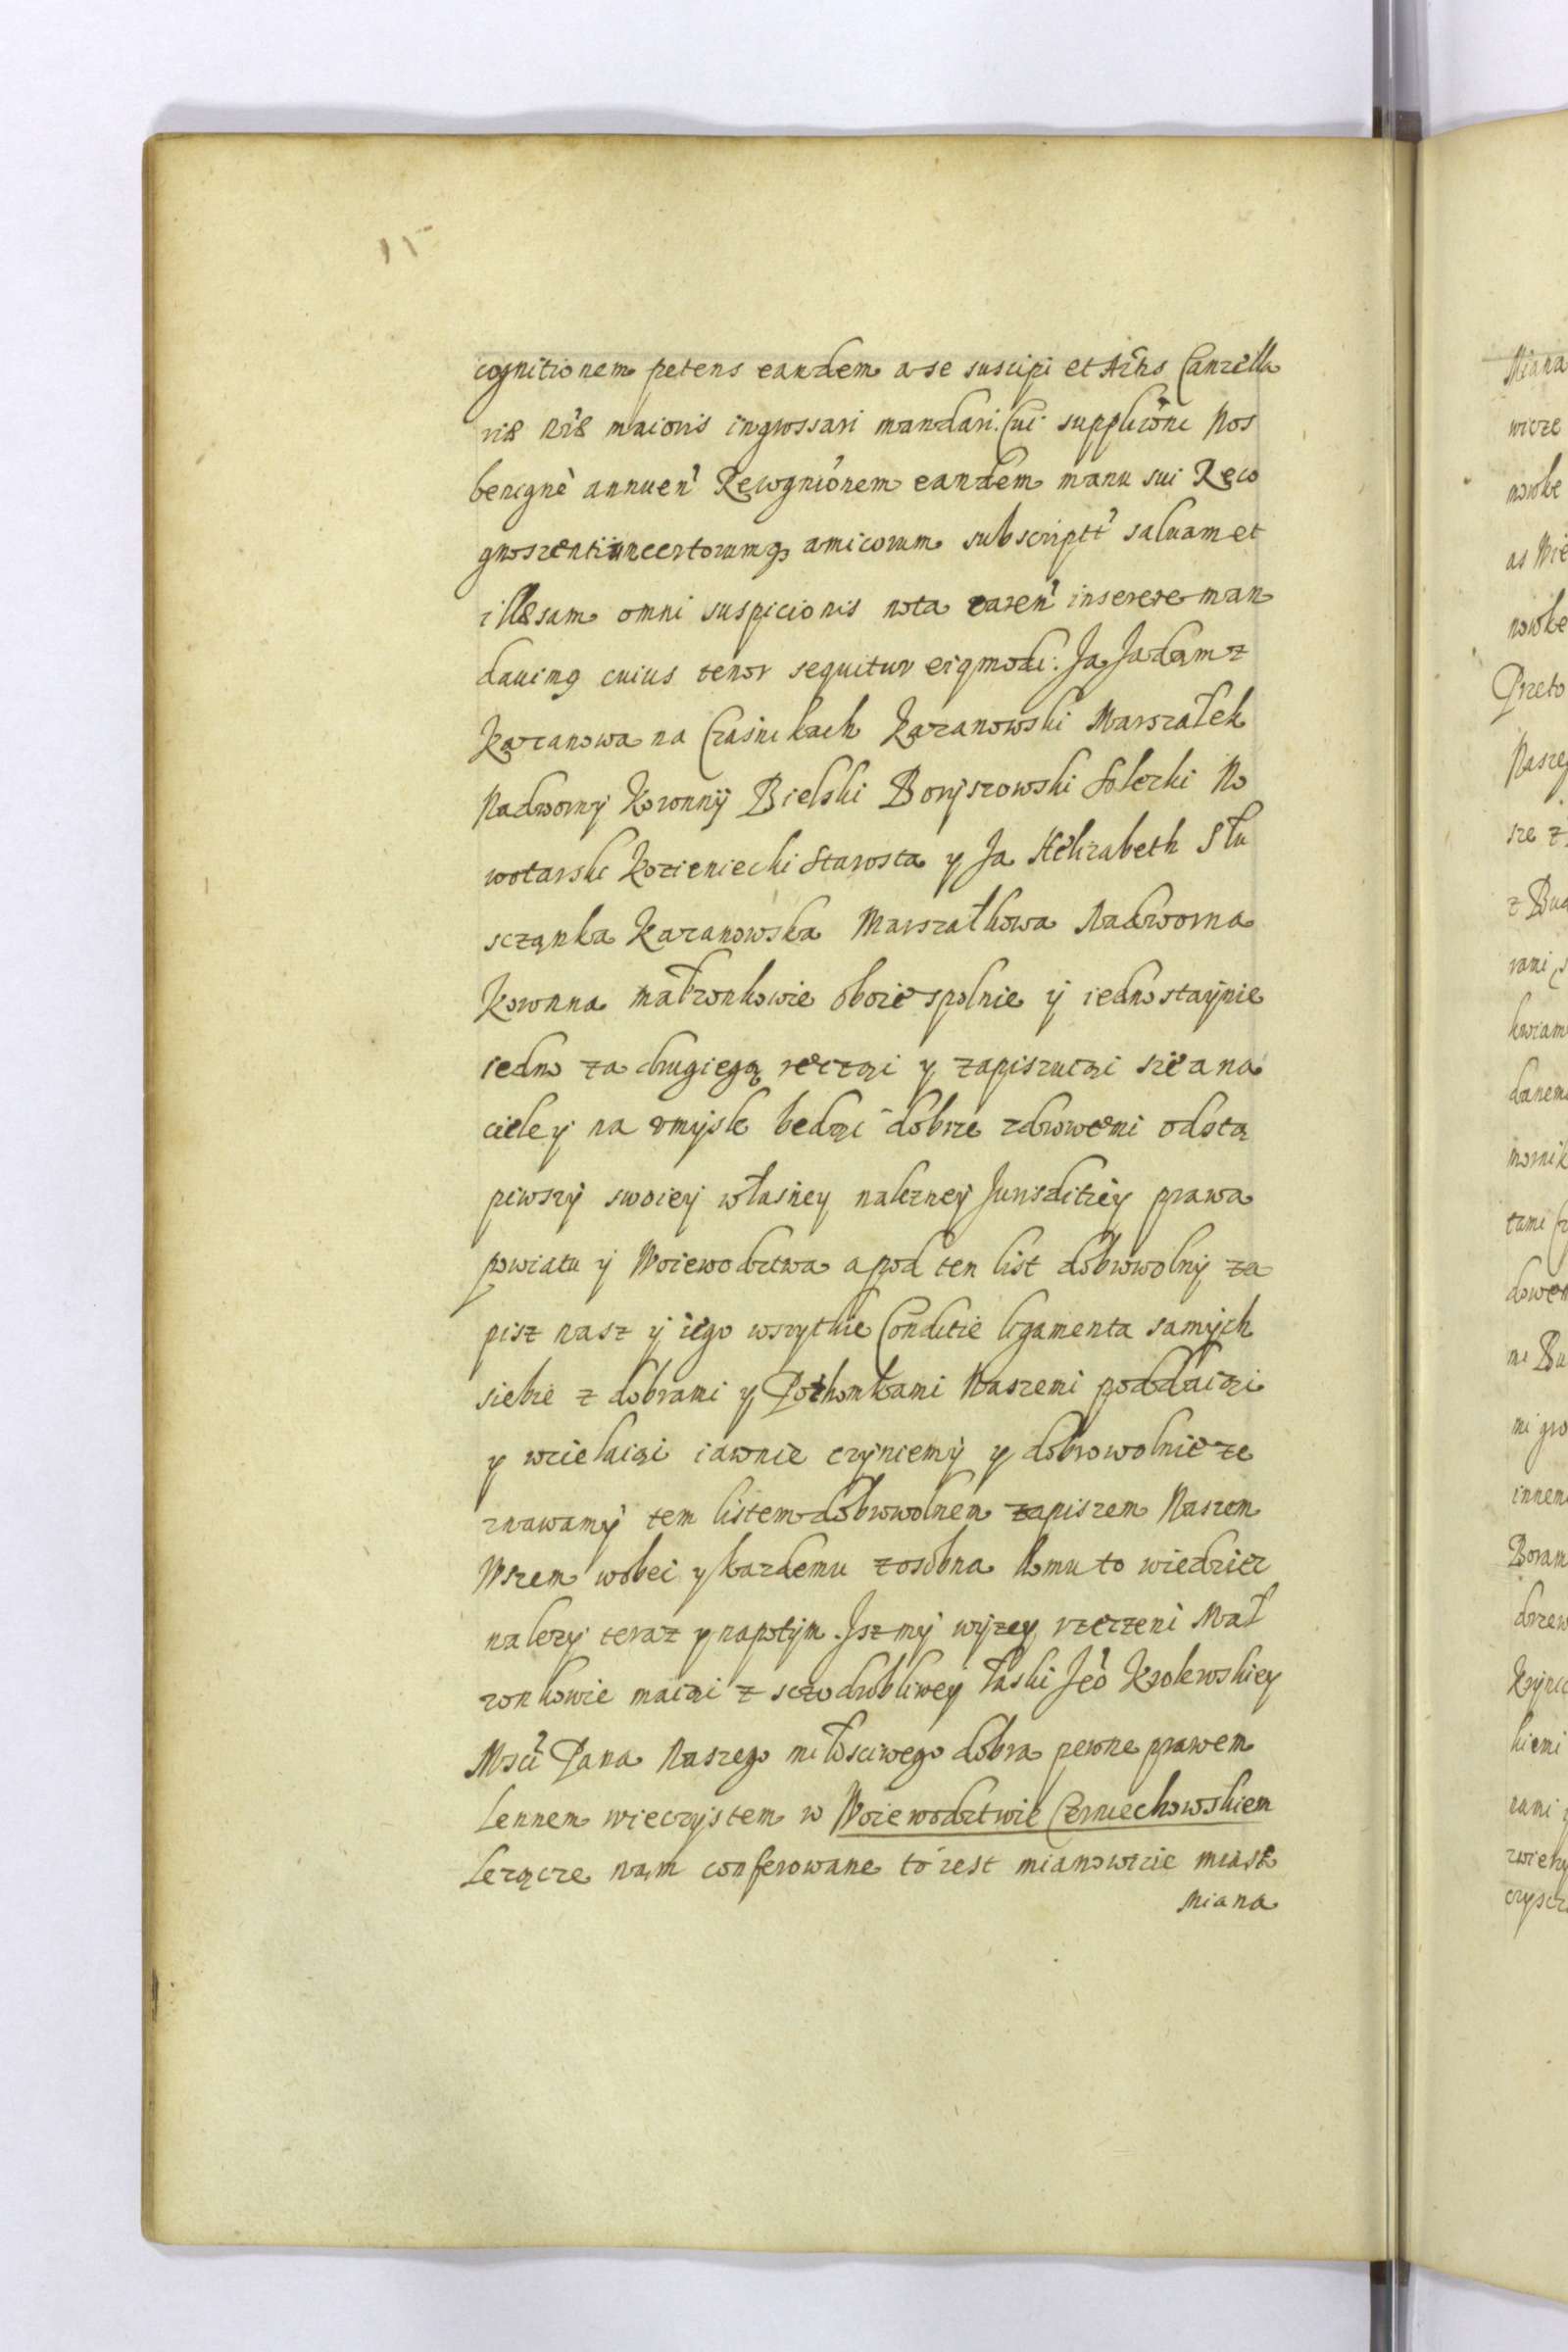 15
cognitionem petens eandem a se suscipi et Actis Cancella
riæ nræ maioris ingrossari mandari. Cui suppliconi Nos
benignè annuen Recognionem eandem manu sui Reco
gnoscentis certorumq amicorum subscript saluam et
illæsam omni suspicionis nota caren inserere man
dauimg cuius tenor sequitur eiqmodi. Ja Jadam z
Kazanowa na Czasnikach Kazanowski Marszałek
Nadworny Koronny Bielski Boryszowski Solecki No
wotarski Kozieniecki Starosta y Ja Helizabeth Słu
sczanka Kazanowska Marszałkowa Nadworna
Koronna małzonkowie oboie spolnie ÿ iednostaynie
iedno za drugiego ręcząci y zapisuiąci sie a na
ciele y na vmysle będąci dobrze zdrowemi odstą
piwszy swoiey własney należney Jurisditiey prawa
powiatu ÿ Woiewodztwa a pod ten list dobrowolny za
pisz nasz ÿ iego wszytkie Conditie ligamenta samych
siebie z dobrami y Potomkami Naszemi poddaiąci
y wcielaiąci iawnie czyniemy y dobrowolnie ze
znawamy tem listem dobrowolnem zapisem Naszem
Wszem wobec y kazdemu zosobna komu to wiedziec
nalezy teraz y napotym. Jsz my wyzey rzeczeni Mał
zonkowie maiąci z sczodrobliwey łaski Jeo Krolewskiey
Msci Pana Naszego miłosciwego dobra pewne prawem
Lennem wieczystem w Woiewodztwie Czerniechowskiem
Lezącze nam conferowane to iest mianowicie miast
Miana